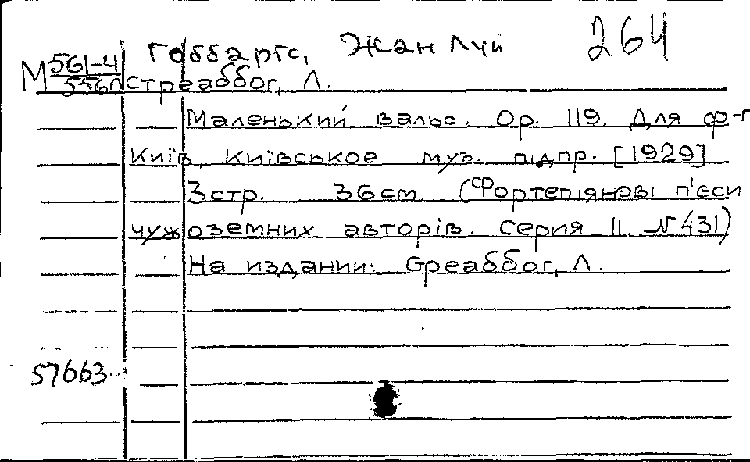 Гоббартс, Жан Луи 264
М 561-4/556 Стреаббог, Л.
Маленький вальс. Op. 119. Для ф-п
Київ, Київськое муз. підпр. [1929]
3 стр. 36 см. (Фортепіянові п'єси
чужоземних авторів. Серия II. N 431)
На издании: Стреаббог, Л.
57663